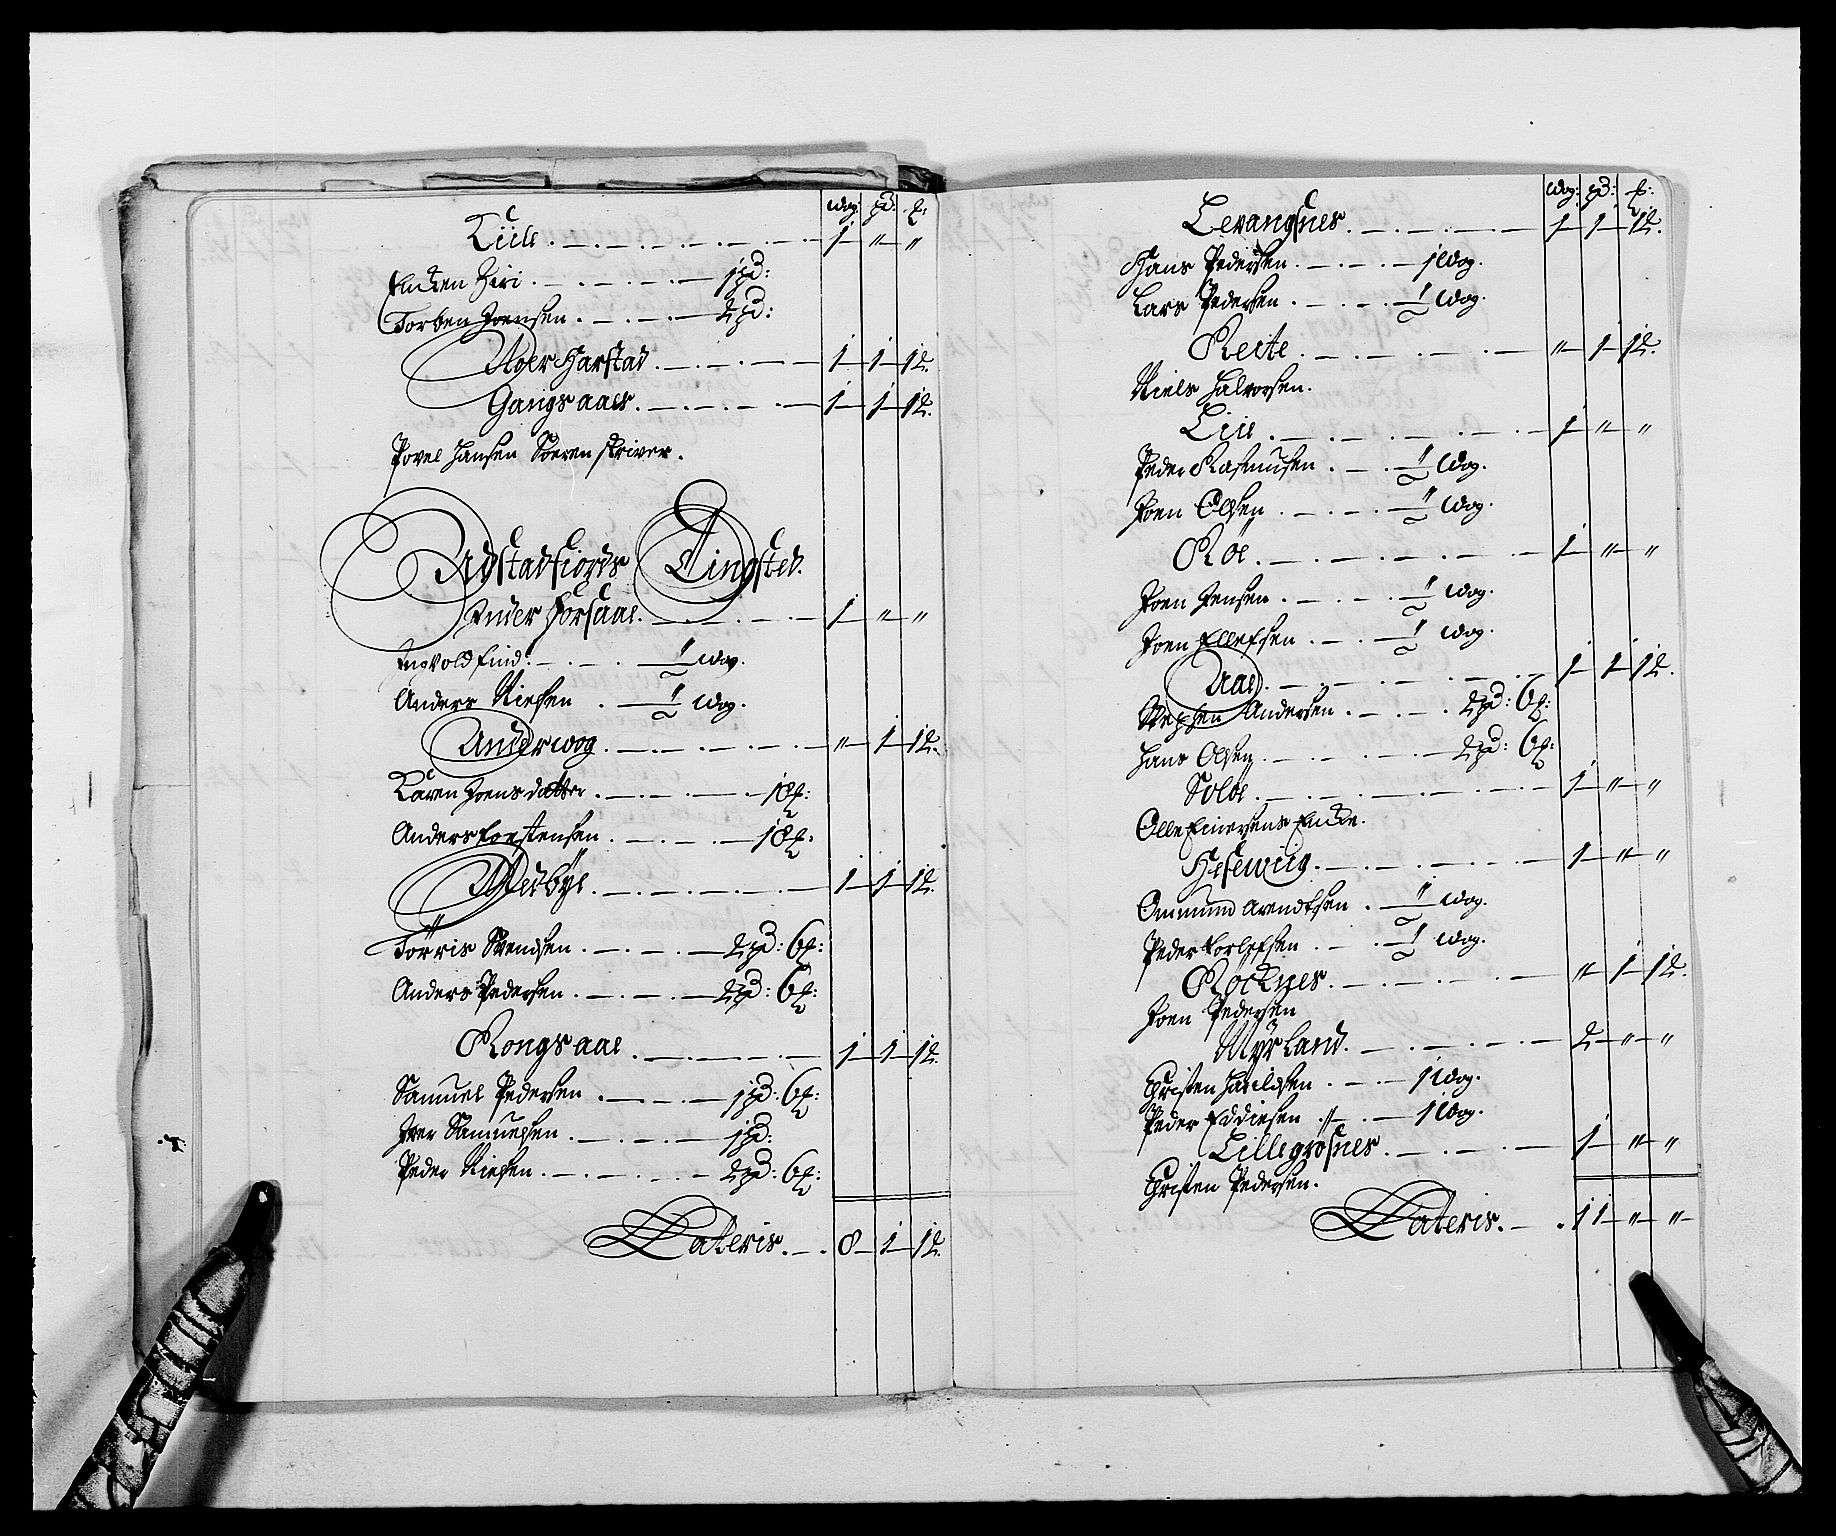 Wog: pd: ℔:
Liile . 1 " "
Encken Ziri . 1 pd:
Torben Joensen . 2 pd:
Ager Harstad . 1 1 12.
Gangsaaes . 1 1 12.
Povel Hansen Sorenskriver.
Astadfiords Tingsted.
Inder Horsaae . 1 " "
Ingvold Find . ½ Wog.
Anders Nielsen . ½ Wog.
Anderwog . " 1 12.
Karen Joensdatter . 18 ℔:
Anders Torstensen . 18 ℔:
Medbye . 1 1 12.
Törris Svendsen . 2 pd: 6 ℔:
Anders Pedersen . 2 pd: 6 ℔:
Rongsaae . 1 1 12.
Samuel Pedersen . 1 pd: 6 ℔:
Iver Samuelsen . 1 pd:
Peder Nielsen . 2 pd: 6 ℔:
Lateris . 8 1 12.
Wog: pd: ℔:
Levangsnes . 1 1 12.
Hans Pedersen . 1 Wog.
Lars Pedersen . ½ Wog.
Reite . " 1 12.
Niels Halvorsen.
Liie . 1 " "
Peder Rasmusen . ½ Wog.
Joen Olsen . ½ Wog.
Röe . 1 " "
Joen Jensen . ½ Wog.
Joen Ellefsen . ½ Wog.
Aae . 1 1 12.
Stephen Andersen . 2 pd: 6 ℔:
Hans Olsen . 2 pd: 6 ℔:
Solöe . 1 " "
Olle Einersens Encke.
Hesewiig . 1 " "
Ommund Arendtsen . ½ Wog.
Peder Torlefsen . ½ Wog.
Röcknes . " 1 12.
Joen Pedersen
Myrland . 2 " "
Christen Harildsen . 1 Wog.
Peder Eddiesen . 1 Wog.
Lillegrösnes . 1 " "
Christen Pedersen.
Lateris . 11 " "